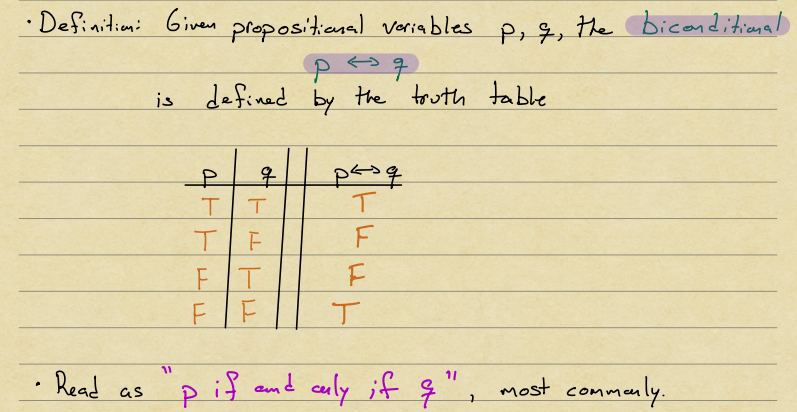 · Definition: Given propositional variables p, q, the biconditional
p ↔ q
is defined by the truth table
p q p↔q
T T T
T F F
F T F
F F T
· Read as "p if and only if q", most commonly.